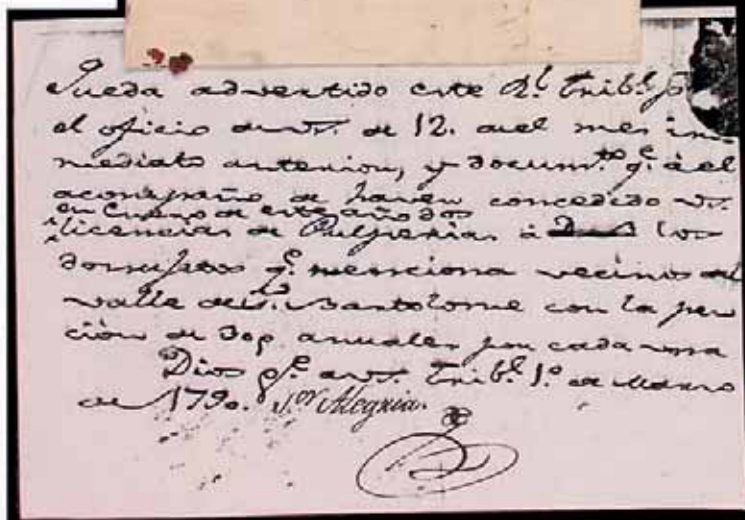 Queda advertido este Rl. Tribl. p
el oficio de vs. de 12. del mes in
mediato anterior, y documto. qe. a el
acompaño de haver concedido vs.
en Enero de este año dos
licencias de Pulperias á los
dos sujetos qe. menciona vecinos del
valle de Sn. Bartolome con la pen
cion de 30p anuales por cada una
Dios gue. a vs. Tribl. 1o. de Marzo
de 1790. Sor Alegria.